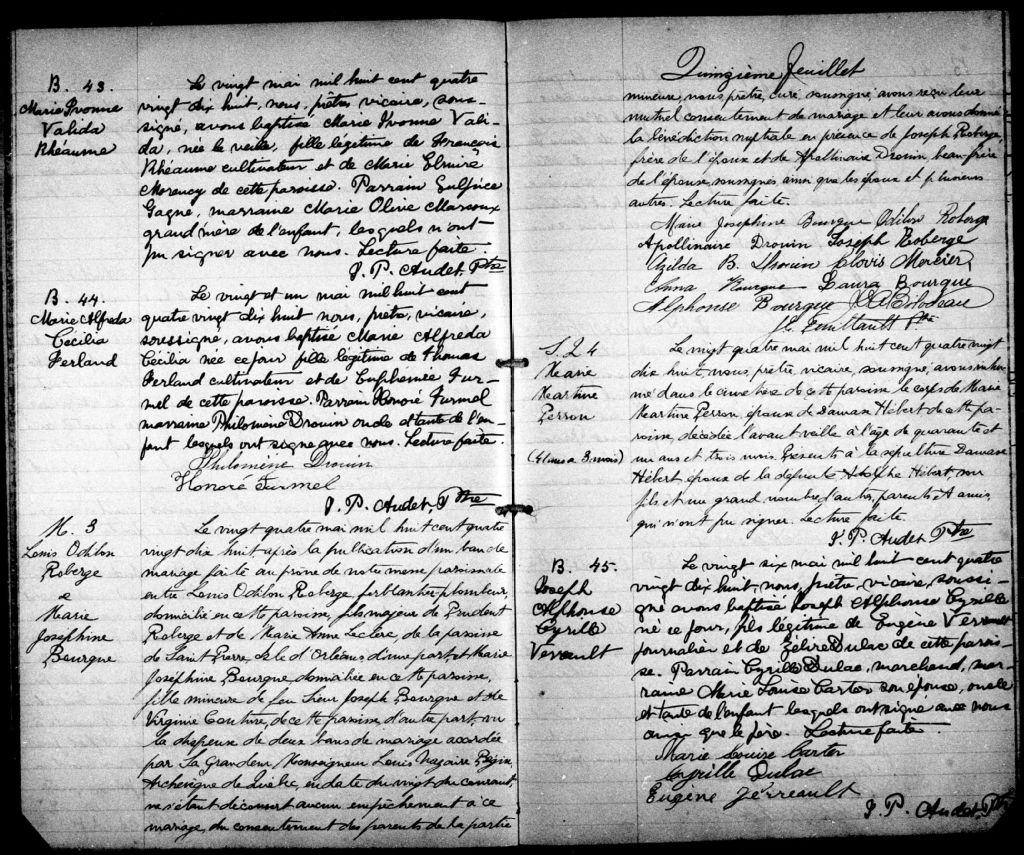 B. 43.
Marie Yvonne
Valida
Rhéaume
Le vingt mai mil huit cent quatre
vingt dix huit, nous, prêtre, vicaire, sous-
signé, avons baptisé Marie Yvonne Vali-
da, née la veille, fille légitime de François
Rhéaume cultivateur et de Marie Elmire
Morency de cette paroisse. Parrain Sulpice
Gagné, marraine Marie Olive Marcoux
grand'mère de l'enfant, lesquels n'ont
pu signer avec nous. Lecture faite
J. P. Audet, Ptre
B. 44.
Marie Alfreda
Cécilia
Ferland
Le vingt et un mai mil huit cent
quatre vingt dix huit nous, prêtre, vicaire,
soussigné, avons baptisé Marie Alfreda
Cécilia née ce jour fille légitime de Thomas
Ferland cultivateur et de Euphémie Tur-
mel de cette paroisse. Parrain Honoré Turmel
marraine Philomène Drouin oncle et tante de l'en-
fant lesquels ont signé avec nous. Lecture faite.
Philomène Drouin
Honoré Turmel
J. P. Audet, Ptre
M. 3
Louis Odilon
Roberge
&
Marie
Josephine
Bourque
Le vingt quatre mai mil huit cent quatre
vingt dix huit après la publication d'un ban de
mariage faite au prône de notre messe paroissiale
entre Louis Odilon Roberge, ferblantier-plombeur,
domicilié en cette paroisse, fils majeur de Prudent
Roberge et de Marie Anne Leclerc, de la paroisse
de Saint Pierre, Isle d'Orléans d'une part, et Marie
Josephine Bourque, domiciliée en cette paroisse,
fille mineure de feu Sieur Joseph Bourque et de
Virginie Couture, de cette paroisse, d'autre part, vu
la dispense de deux bans de mariage accordée
par Sa Grandeur Monseigneur Louis Nazaire Bégin,
Archevêque de Québec, en date du vingt du courant,
ne s'étant découvert aucun empêchement à ce
mariage, du consentement des parents de la partie
Quinzième feuillet
mineure, nous prêtre, curé, soussigné, avons reçu leur
mutuel consentement de mariage et leur avons donné
la bénédiction nuptiale en présence de Joseph Roberge,
frère de l'époux et de Apollinaire Drouin beau-frère
de l'épouse, soussignés ainsi que les époux et plusieurs
autres. Lecture faite.
Marie Josephine Bourque Odilon Roberge
Apollinaire Drouin Joseph Roberge
B. Clovis Mercier,
Emma Bourque Laura Bourque
Alphonse Bourque Bilodeau
Feuiltault Ptre
S. 24
Marie
Martine
Perron
(41 ans & 3 mois)
Le vingt quatre mai mil huit cent quatre vingt
dix huit nous, prêtre, vicaire, soussigné, avons inhu-
mé dans le cimetière de cette paroisse le corps de Marie
Martine Perron, épouse de Damase Hébert de cette pa-
roisse, décédée l'avant veille à l'âge de quarante et
un ans et trois mois. Présents à la sépulture Damase
Hébert époux de la défunte Adolphe Hébert, son
fils, et un grand nombre d'autres, parents et amis,
qui n'ont pu signer. Lecture faite.
J. P. Audet Ptre
B. 45.
Joseph
Alphonse
Cyrille
Verrault
Le vingt six mai mil huit cent quatre
vingt dix huit, nous, prêtre, vicaire, soussi-
gné avons baptisé Joseph Alphonse Cyrille
né ce jour, fils légitime de Eugène Verrault
journalier et de Zélire Dulac de cette parois-
se. Parrain Cyrille Dulac, marchand, mar-
raine Marie Louise Carter son épouse, oncle
et tante de l'enfant lesquels ont signé avec nous
ainsi que le père. Lecture faite.
Marie Louise Carter
Cyrille Dulac
Eugène Verreault
J. P. Audet, Ptre